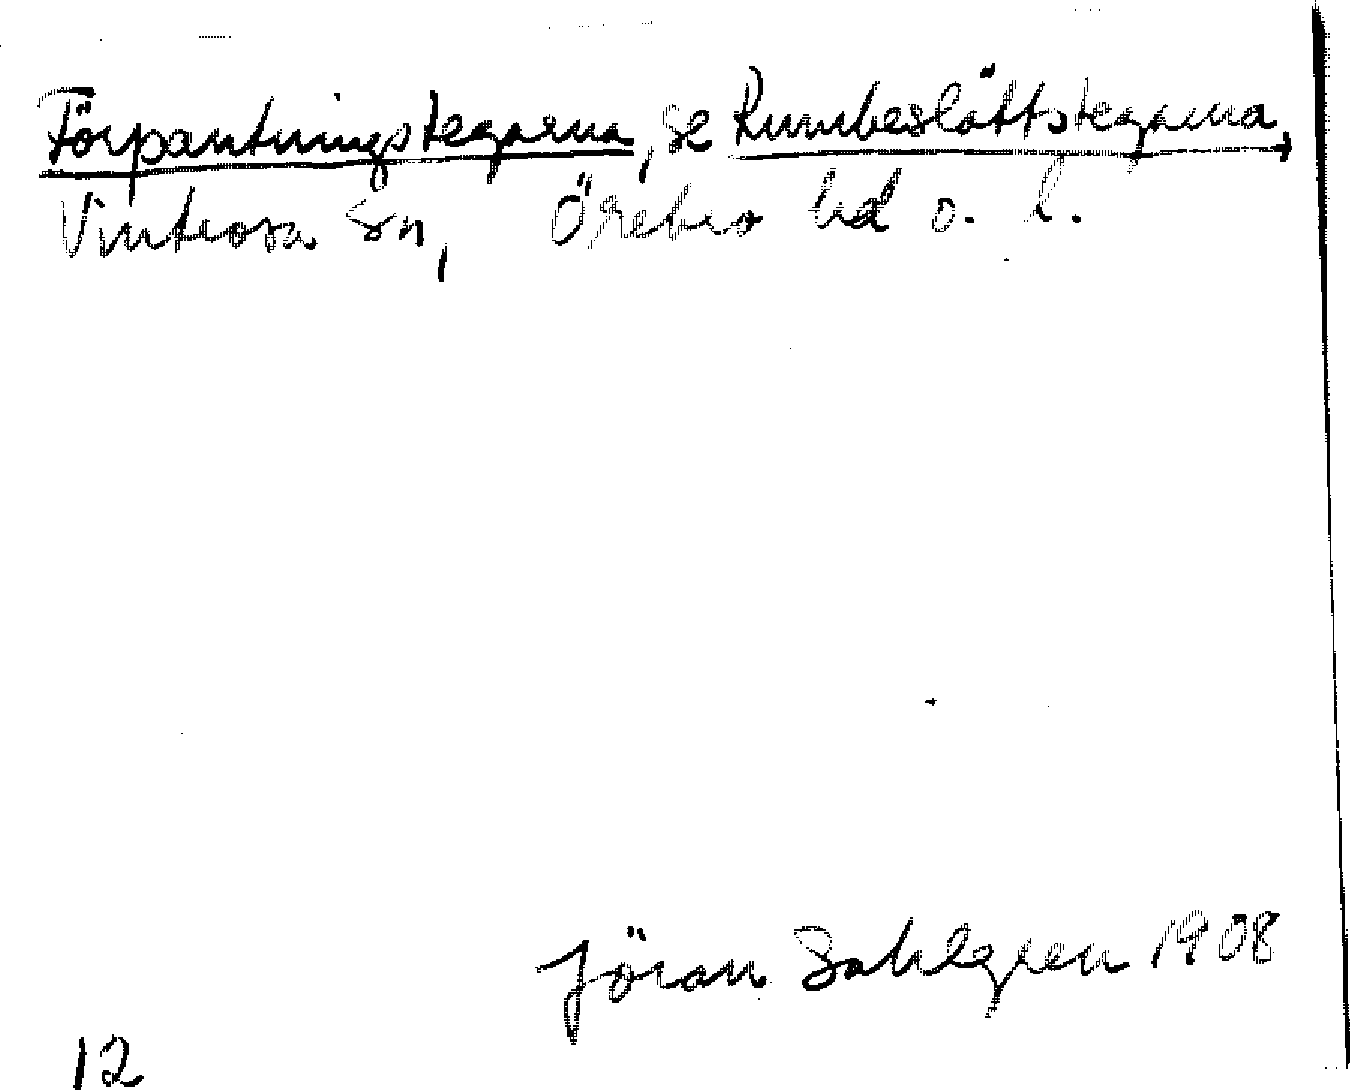 Förpantningstegarna, se Rumbeslåttstegarna,
Vintrosa sn, Örebro hd o. l.
Jöran Sahlgren 1908
12